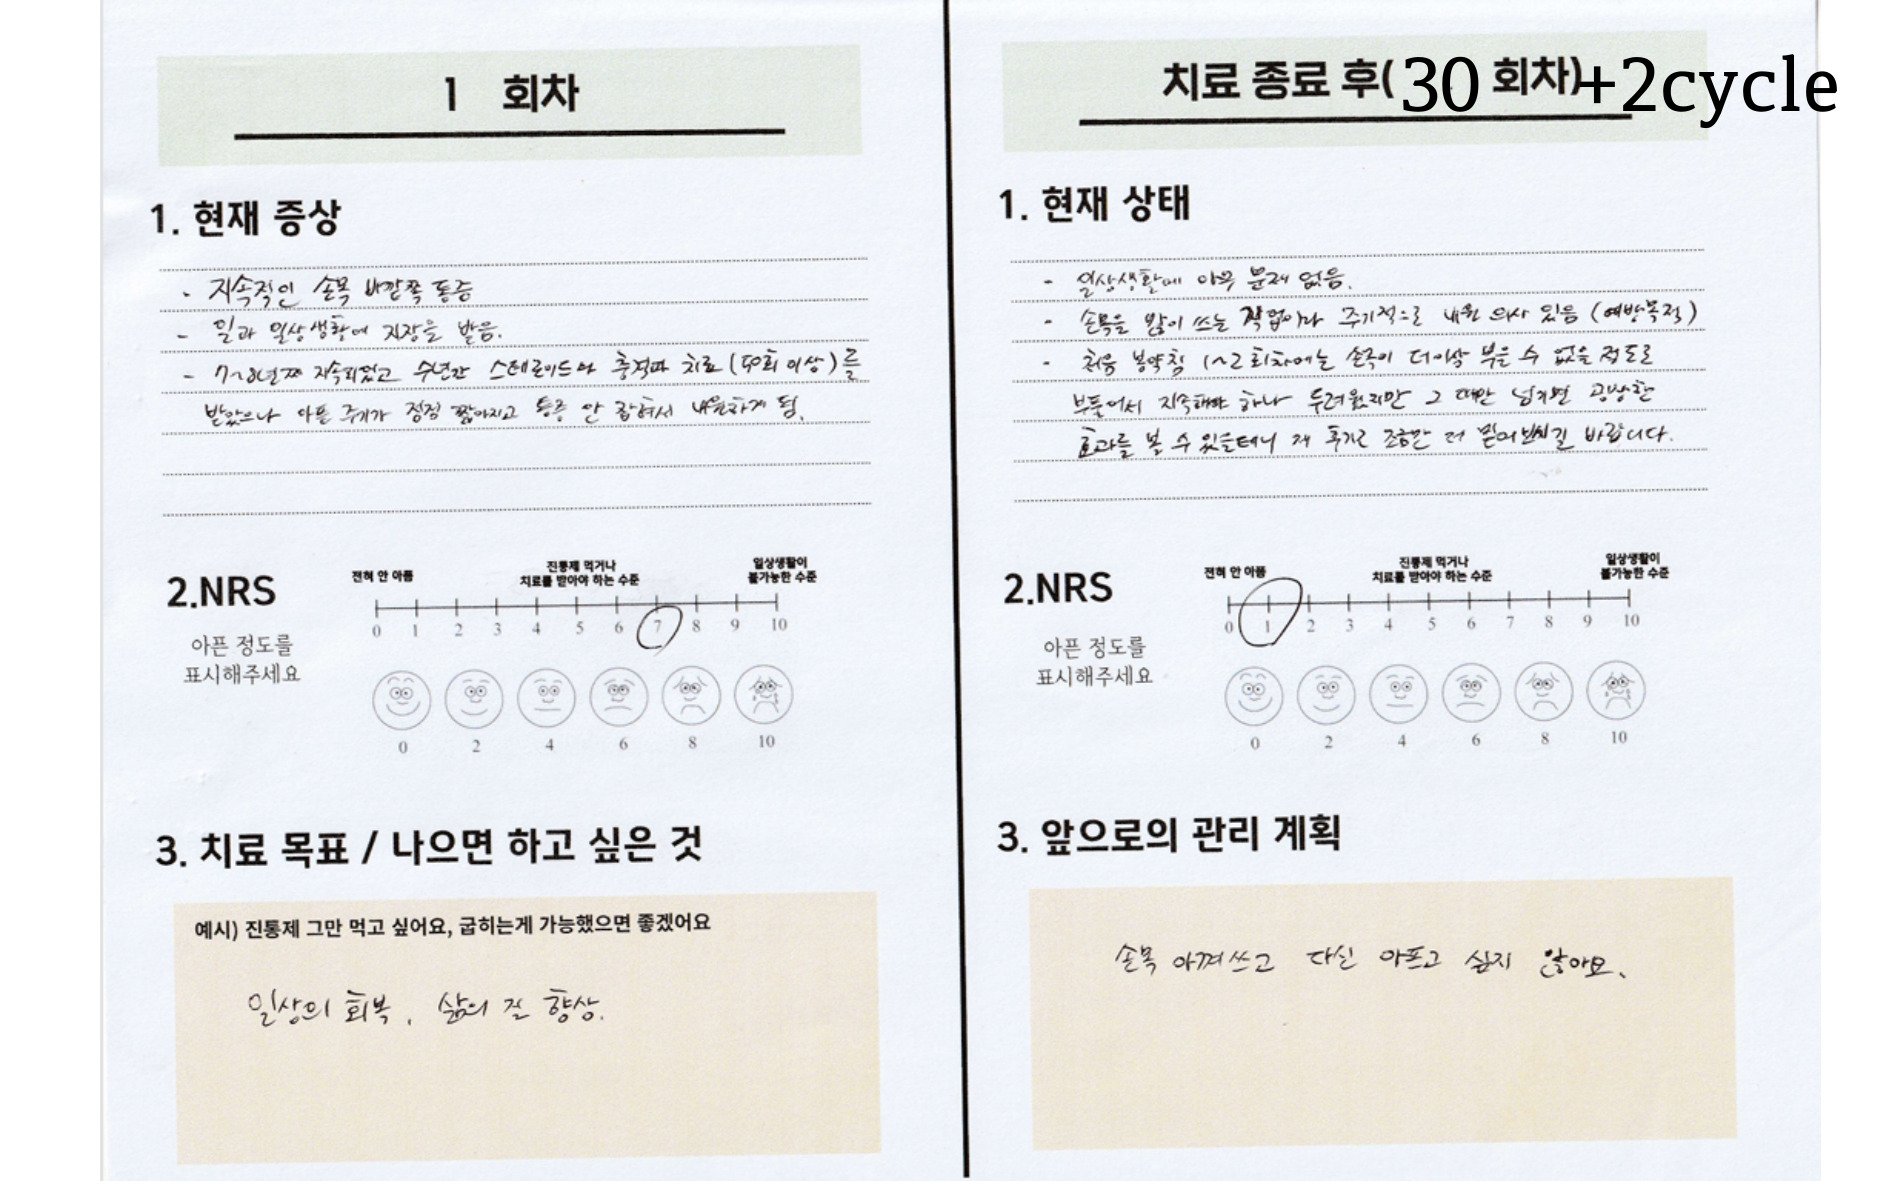 1 회차
1. 현재 증상
- 지속적인 손목 바깥쪽 통증
- 일과 일상생활에 지장을 받음.
- 7~8년째 지속되었고 수년간 스테로이드와 충격파 치료 (50회 이상)를
받았으나 아픈 주기가 점점 짧아지고 통증 안 잡혀서 내원하게 됨.
2.NRS
아픈 정도를
표시해주세요
전혀 안 아픔
진통제 먹거나
치료를 받아야 하는 수준
일상생활이
불가능한 수준
0 1 2 3 4 5 6 7 8 9 10
0 2 4 6 8 10
3. 치료 목표 / 나으면 하고 싶은 것
예시) 진통제 그만 먹고 싶어요, 굽히는게 가능했으면 좋겠어요
일상의 회복, 삶의 질 향상.
치료 종료 후( 30 회차)+2cycle
1. 현재 상태
- 일상생활에 아무 문제 없음.
- 손목을 많이 쓰는 직업이라 주기적으로 내원 의사 있음 (예방목적)
- 처음 봉약침 1~2회차에는 손목이 더이상 부을 수 없을 정도로
부들어서 지속해야 하나 두려웠지만 그 때만 넘기면 굉장한
효과를 볼 수 있을테니 제 후기로 조금만 더 믿어보시길 바랍니다.
2.NRS
아픈 정도를
표시해주세요
전혀 안 아픔
진통제 먹거나
치료를 받아야 하는 수준
일상생활이
불가능한 수준
0 1 2 3 4 5 6 7 8 9 10
0 2 4 6 8 10
3. 앞으로의 관리 계획
손목 아껴쓰고 다신 아프고 싶지 않아요.